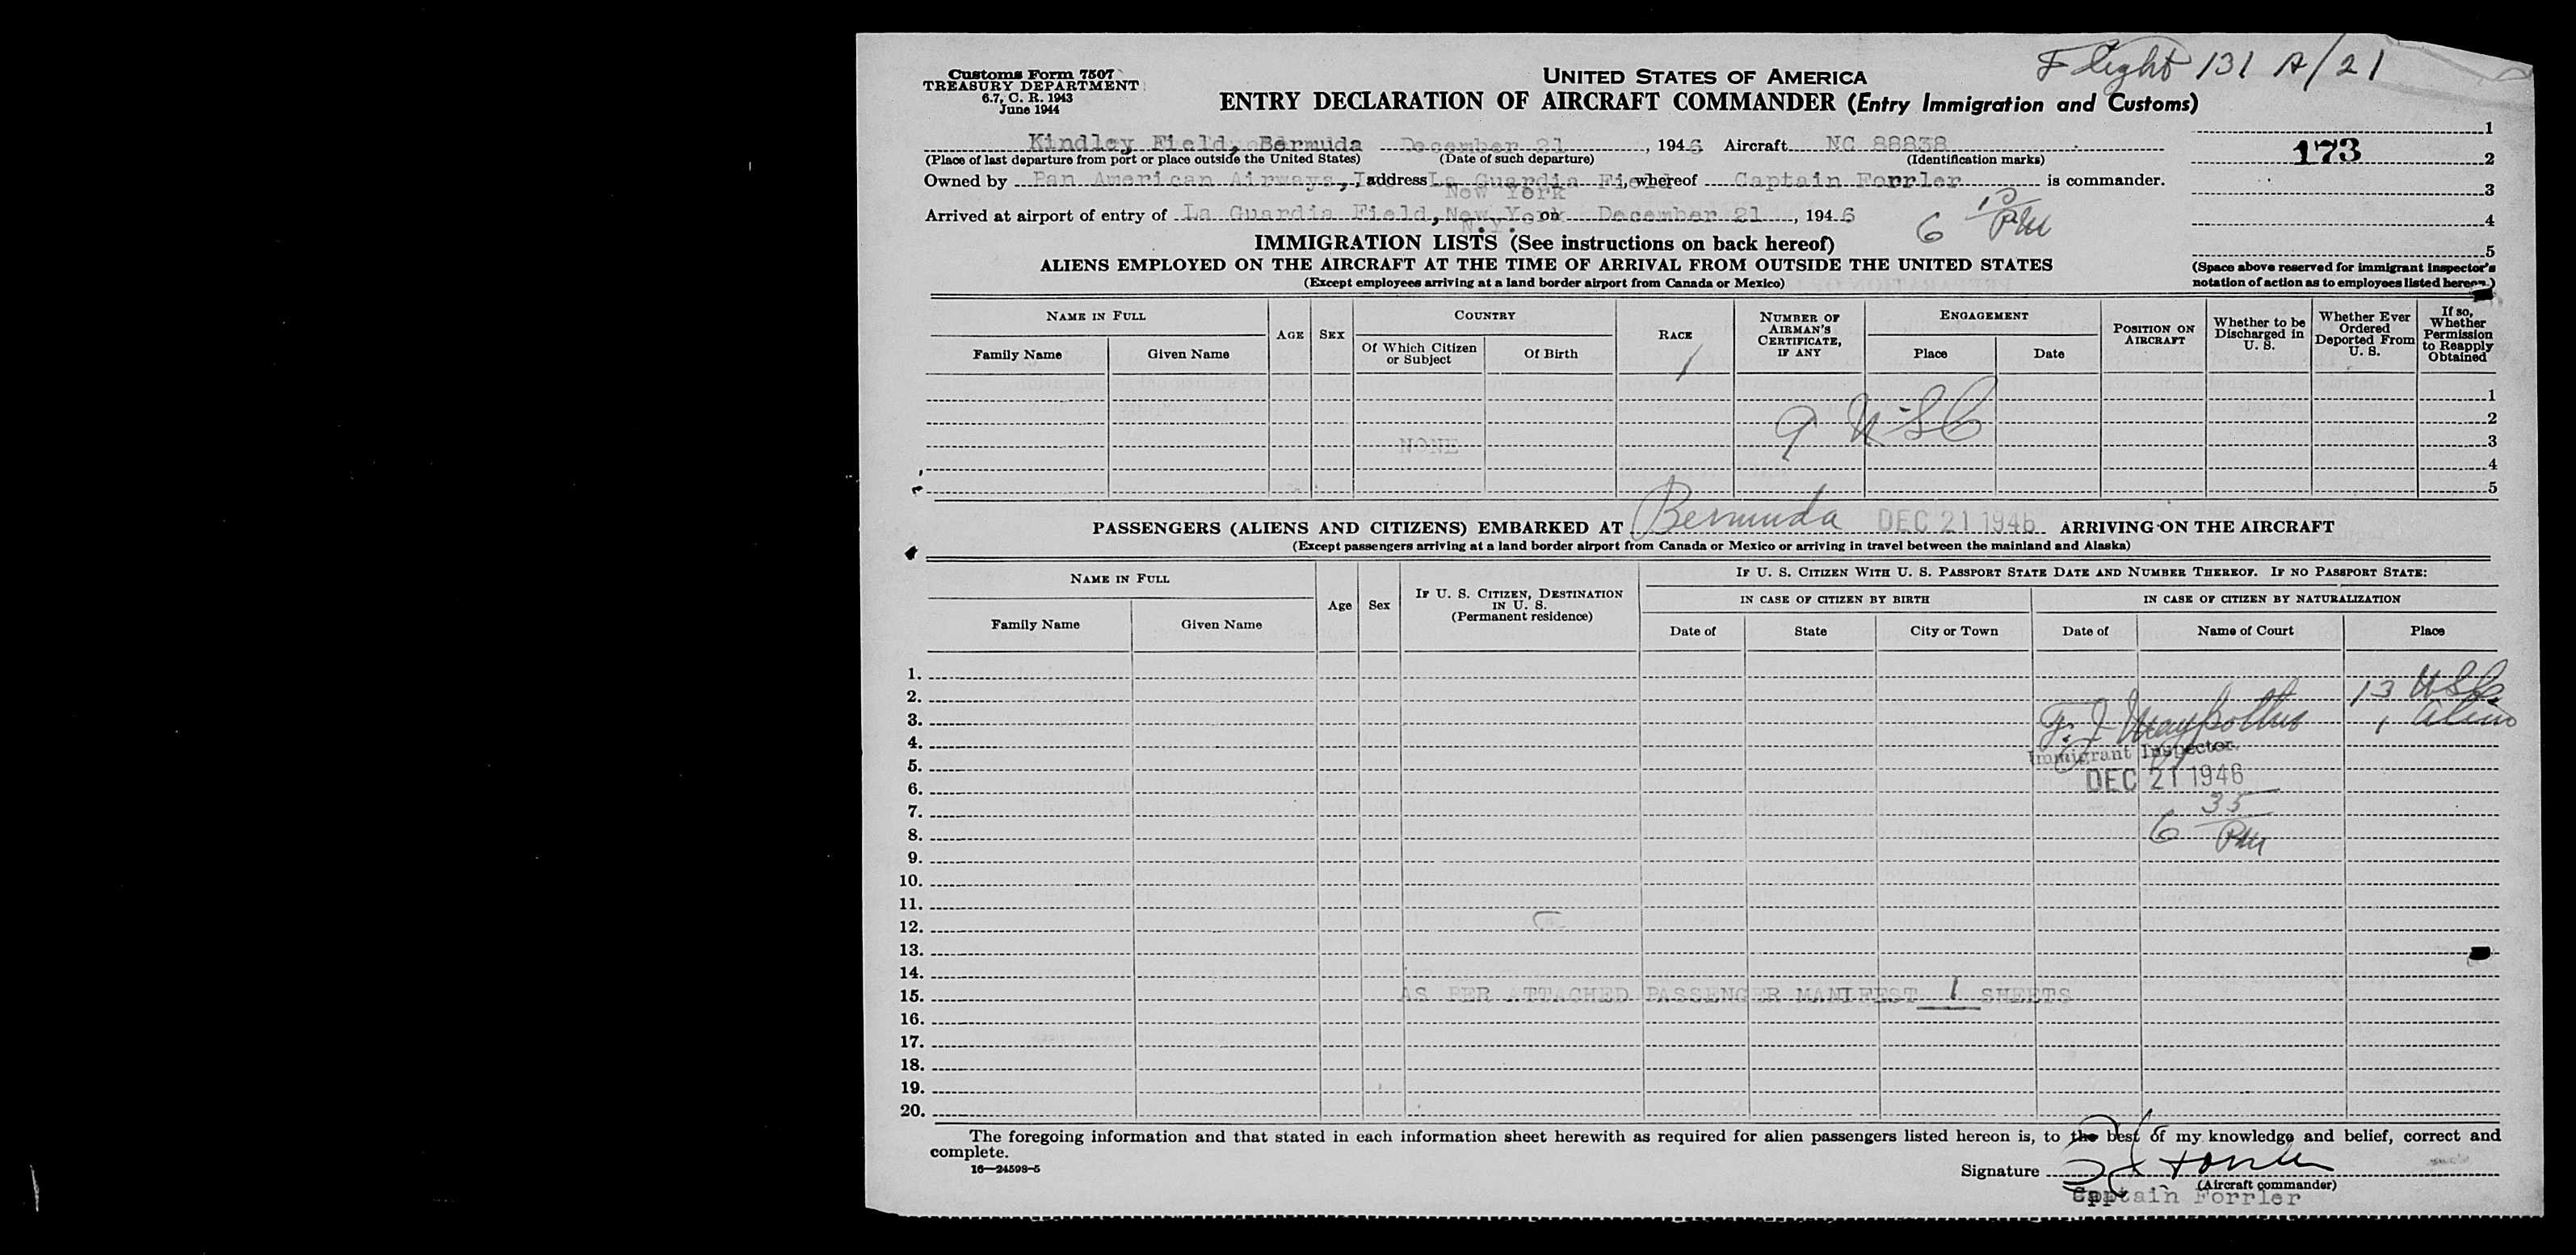 Flight 131 A/21
Customs Form 7507
TREASURY DEPARTMENT
6.7, C. R. 1943
June 1944
UNITED STATES OF AMERICA
ENTRY DECLARATION OF AIRCRAFT COMMANDER (Entry Immigration and Customs)
Kindley Field, Bermuda December 21, 1946 Aircraft NC 88838
(Place of last departure from port or place outside the United States) (Date of such departure) (Identification marks)
Owned by Pan American Airways, address La Guardia Field, whereof Captain Forrler is commander.
New York
Arrived at airport of entry of La Guardia Field, New York on December 21, 1946
N.Y.
6 10/PM
1
173
2
3
4
5
(Space above reserved for immigrant inspector's
notation of action as to employees listed hereon.)
IMMIGRATION LISTS (See instructions on back hereof)
ALIENS EMPLOYED ON THE AIRCRAFT AT THE TIME OF ARRIVAL FROM OUTSIDE THE UNITED STATES
(Except employees arriving at a land border airport from Canada or Mexico)
NAME IN FULL
Family Name
Given Name
AGE
SEX
COUNTRY
Of Which Citizen
or Subject
Of Birth
RACE
NUMBER OF
AIRMAN'S
CERTIFICATE,
IF ANY
ENGAGEMENT
Place
Date
POSITION ON
AIRCRAFT
Whether to be
Discharged in
U. S.
Whether Ever
Ordered
Deported From
U. S.
If so,
Whether
Permission
to Reapply
Obtained
1
2
3
4
5
9 USC
NONE
PASSENGERS (ALIENS AND CITIZENS) EMBARKED AT Bermuda DEC 21 1946 ARRIVING ON THE AIRCRAFT
(Except passengers arriving at a land border airport from Canada or Mexico or arriving in travel between the mainland and Alaska)
NAME IN FULL
Family Name
Given Name
Age
Sex
IF U. S. CITIZEN, DESTINATION
IN U. S.
(Permanent residence)
IF U. S. CITIZEN WITH U. S. PASSPORT STATE DATE AND NUMBER THEREOF. IF NO PASSPORT STATE:
IN CASE OF CITIZEN BY BIRTH
IN CASE OF CITIZEN BY NATURALIZATION
Date of
State
City or Town
Date of
Name of Court
Place
1.
2.
3.
4.
5.
6.
7.
8.
9.
10.
11.
12.
13.
14.
15. AS PER ATTACHED PASSENGER MANIFEST 1 SHEETS
16.
17.
18.
19.
20.
13 USC
1 Alien
F. J.
Immigrant Inspector.
DEC 21 1946
6 35/PM
The foregoing information and that stated in each information sheet herewith as required for alien passengers listed hereon is, to the best of my knowledge and belief, correct and
complete.
16—24598-5
Signature
(Aircraft commander)
Captain Forrler